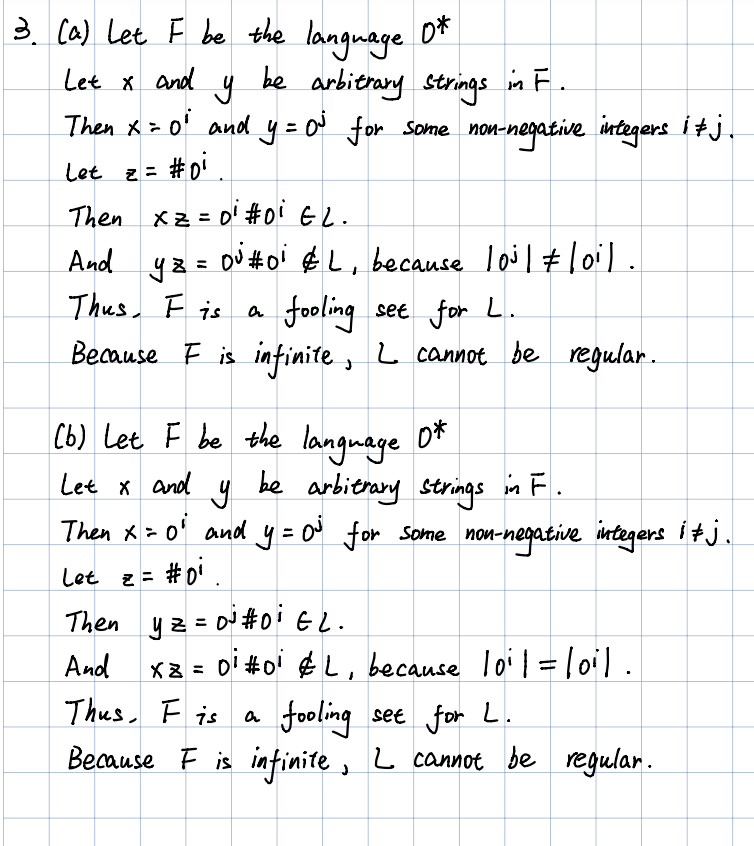 3. (a) Let F be the language 0*
Let x and y be arbitrary strings in F.
Then x = 0ⁱ and y = 0ʲ for some non-negative integers i ≠ j.
Let z = #0ⁱ.
Then xz = 0ⁱ#0ⁱ ∈ L.
And yz = 0ʲ#0ⁱ ∉ L, because |0ʲ| ≠ |0ⁱ|.
Thus, F is a fooling set for L.
Because F is infinite, L cannot be regular.
(b) Let F be the language 0*
Let x and y be arbitrary strings in F.
Then x = 0ⁱ and y = 0ʲ for some non-negative integers i ≠ j.
Let z = #0ⁱ.
Then yz = 0ʲ#0ⁱ ∈ L.
And xz = 0ⁱ#0ⁱ ∉ L, because |0ⁱ| = |0ⁱ|.
Thus, F is a fooling set for L.
Because F is infinite, L cannot be regular.